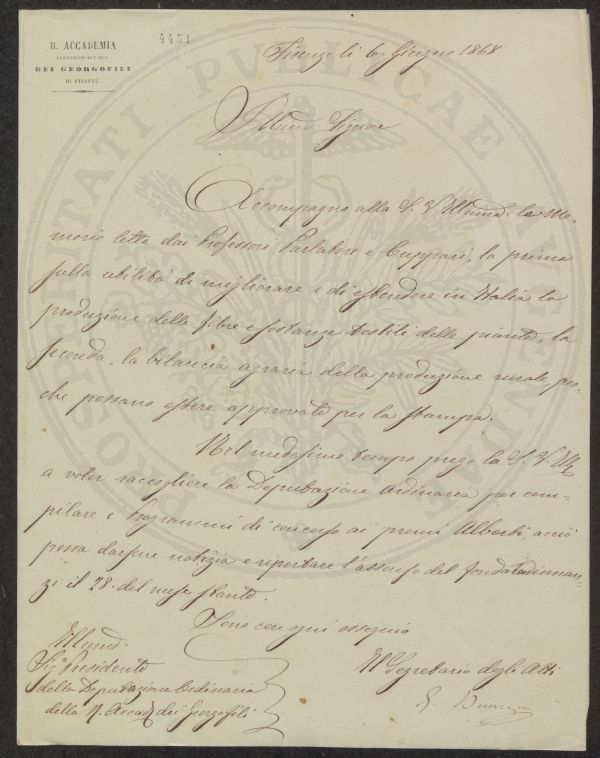 R. ACCADEMIA
ECONOMICO-AGRARIA
DEI GEORGOFILI
DI FIRENZE
4451
Firenze li 6 Giugno 1868
Illmo Signore
Accompagno alla S. V. Illuma. le Me-
morie lette dai Professori Parlatore e Cuppari, la prima
sulla utilità di migliorare e di estendere in Italia la
produzione delle fibre e sostanze tessili delle piante, la
seconda, la bilancia agraria della produzione rurale per-
chè possano essere approvate per la stampa.
Nel medesimo tempo prego la S. V. Ill
a voler raccogliere la Deputazione ordinaria per com-
pilare i Programmi di concorso ai premi Alberti, acciò
possa darsene notizia e riportare l'assenso del
zi il 28. del mese stante.
Sono con ogni ossequio
Illumo.
Sigr. Presidente
della Deputazione Ordinaria
della R. Accad dei Georgofili
Il Segretario degli Atti
PROSPERITATI PUBLICAE AUGENDAE